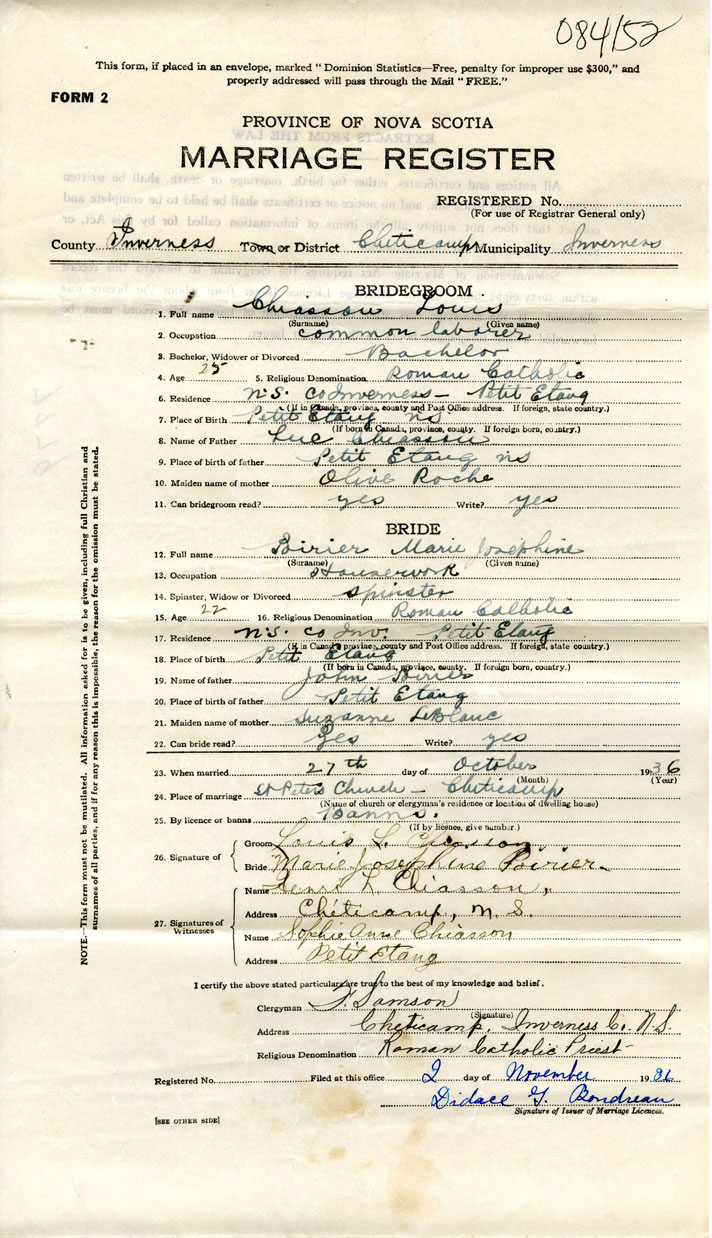 084152
This form, if placed in an envelope, marked "Dominion Statistics—Free, penalty for improper use $300," and
properly addressed will pass through the Mail "FREE."
FORM 2
PROVINCE OF NOVA SCOTIA
MARRIAGE REGISTER
REGISTERED No.
(For use of Registrar General only)
County Inverness Town or District Cheticamp Municipality Inverness
BRIDEGROOM
1. Full name Chiasson Louis
(Surname) (Given name)
2. Occupation common laborer
3. Bachelor, Widower or Divorced Bachelor
4. Age 25 5. Religious Denomination Roman Catholic
6. Residence N.S. Co Inverness - Petit Etang
(If in Canada, province, county and Post Office address. If foreign, state country.)
7. Place of Birth Petit Etang NS
(If born in Canada, province, county. If foreign born, country.)
8. Name of Father Luc Chiasson
9. Place of birth of father Petit Etang NS
10. Maiden name of mother Olive Roche
11. Can bridegroom read? yes Write? yes
BRIDE
12. Full name Poirier Marie Josephine
(Surname) (Given name)
13. Occupation Housework
14. Spinster, Widow or Divorced Spinster
15. Age 22 16. Religious Denomination Roman Catholic
17. Residence N.S. Co Inv. Petit Etang
(If in Canada, province, county and Post Office address. If foreign, state country.)
18. Place of birth Petit Etang
(If born in Canada, province, county. If foreign born, country.)
19. Name of father John Poirier
20. Place of birth of father Petit Etang
21. Maiden name of mother Suzanne LeBlanc
22. Can bride read? Yes Write? yes
23. When married 27th day of October 1936
(Month) (Year)
24. Place of marriage St Peters Church - Cheticamp
(Name of church or clergyman's residence or location of dwelling house)
25. By licence or banns Banns.
(If by licence, give number.)
26. Signature of
Groom Louis L. Chiasson
Bride Marie Josephine Poirier
27. Signatures of Witnesses
Name Henri L. Chiasson
Address Chéticamp, N.S.
Name Sophie Anne Chiasson
Address Petit Etang
I certify the above stated particulars are true to the best of my knowledge and belief.
Clergyman F. Samson
(Signature)
Address Cheticamp, Inverness Co. N.S.
Religious Denomination Roman Catholic Priest
Registered No. Filed at this office 2 day of November 1936
Didace G. Boudreau
Signature of Issuer of Marriage Licences.
[SEE OTHER SIDE]
NOTE.—This form must not be mutilated. All information asked for is to be given, including full Christian and
surnames of all parties, and if for any reason this is impossible, the reason for the omission must be stated.